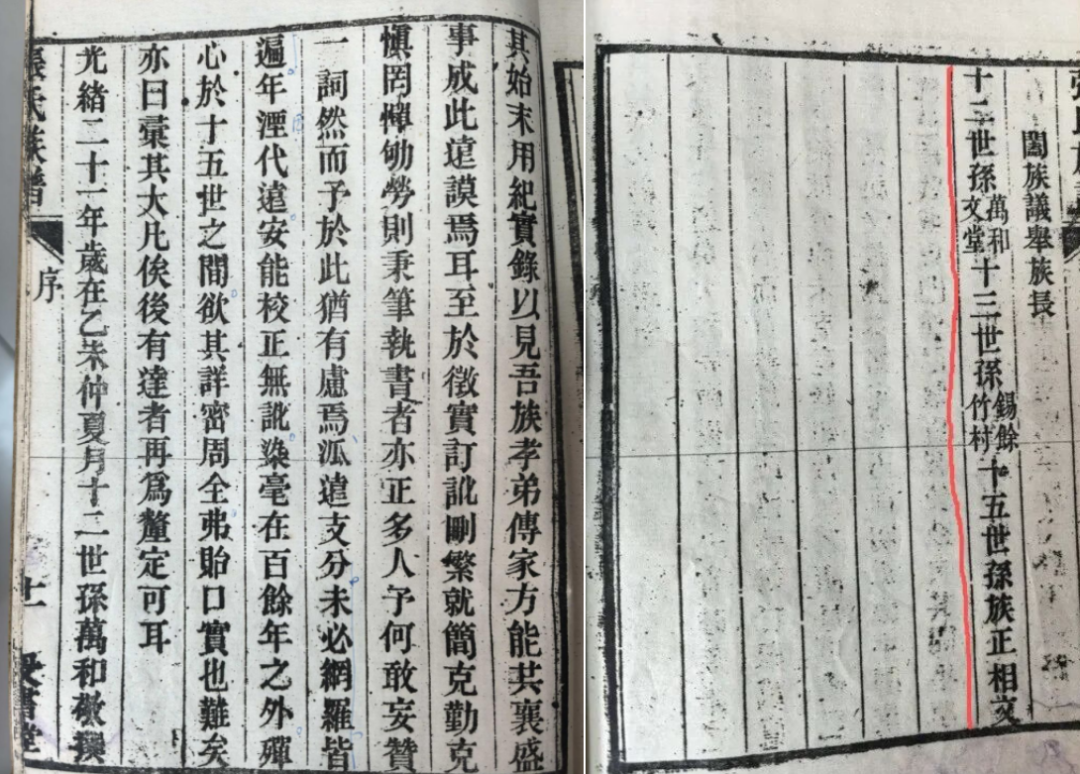 其始末用紀實錄以見吾族孝弟傳家方能共襄盛
事成此遠謨焉耳至於徵實訂訛刪繁就簡克勤克
慎罔憚劬勞則秉筆執書者亦正多人予何敢妄贊
一詞然而予於此猶有慮焉派遠支分未必網羅皆
遍年湮代遠安能校正無訛染毫在百餘年之外殫
心於十五世之間欲其詳密周全弗貽口實也難矣
亦曰彙其大凡俟後有達者再爲釐定可耳
光緒二十一年歲在乙未仲夏月十二世孫萬和敬撰
張氏族譜
序
十一
張氏族譜
闔族議舉族長
十二世孫萬和文堂十三世孫錫餘竹村十五世孫族正相文